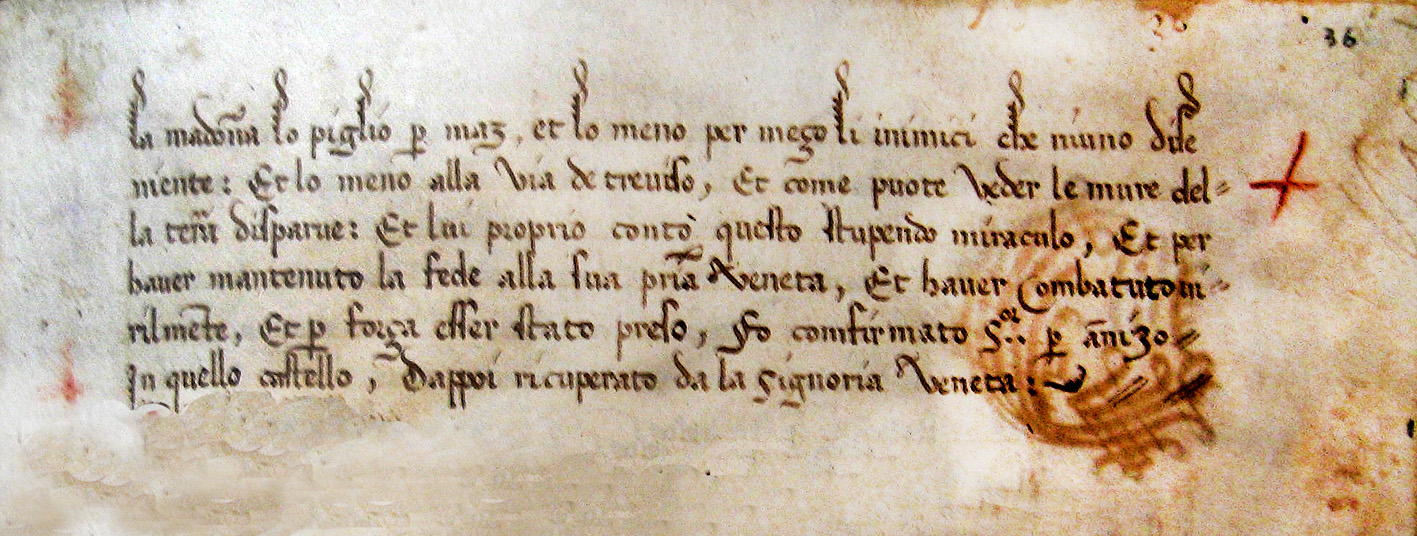 36
la madoña lo piglio p̱ maz, et lo meno per mezo li inimici che niuno dise
niente: Et lo meno alla via de treviso, Et come puote veder le mure del=
la terra disparue: Et lui proprio contò questo stupendo miraculo, Et per
hauer mantenuto la fede alla sua pria Veneta, Et hauer Combatuto vi=
rilmẽte, Et p̱ forza esser stato preso, Fo comfirmato S.or p̱ añi 30=
In quello castello, Dappoi ricuperato da la Signoria Veneta:~